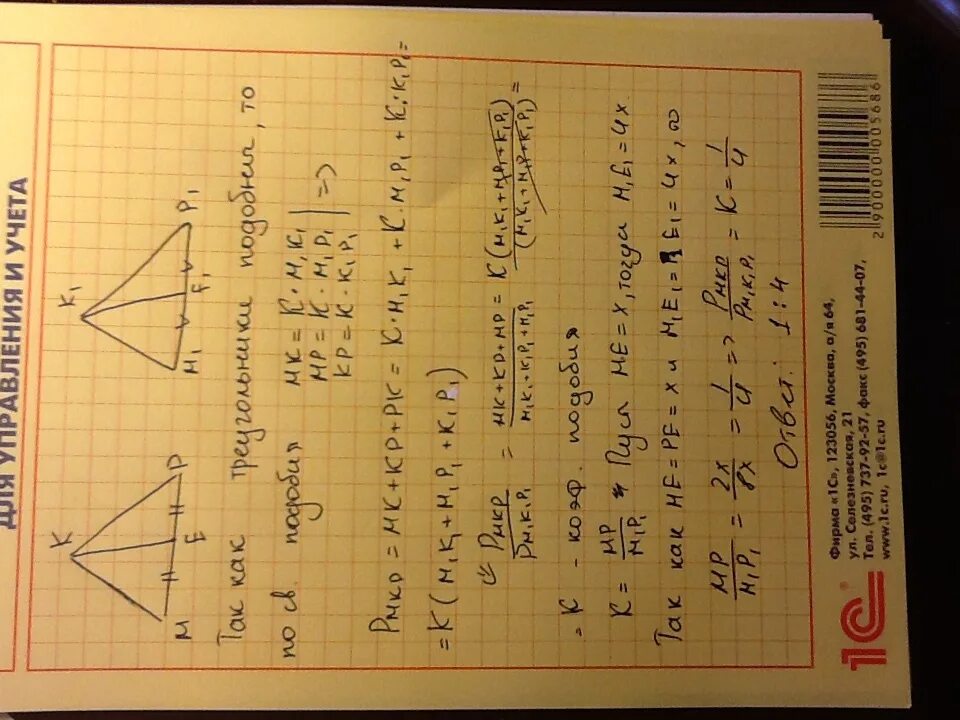 ДЛЯ УПРАВЛЕНИЯ И УЧЕТА
K K₁
M E P M₁ E₁ P₁
Так как треугольники подобны, то
по св. подобия MK = K · M₁K₁
MP = K · M₁P₁ | =>
KP = K · K₁P₁
P_MKP = MK + KP + PK = K · M₁K₁ + K · M₁P₁ + K · K₁P₁ =
= K (M₁K₁ + M₁P₁ + K₁P₁)
P_MKP / P_M₁K₁P₁ = (MK + KP + MP) / (M₁K₁ + K₁P₁ + M₁P₁) = K (M₁K₁ + M₁P₁ + K₁P₁) / (M₁K₁ + M₁P₁ + K₁P₁) =
= K - коэф. подобия
K = MP / M₁P₁ Пусть ME = x, тогда M₁E₁ = 4x.
Так как ME = PE = x и M₁E₁ = P₁E₁ = 4x, то
MP / M₁P₁ = 2x / 8x = 1 / 4 => P_MKP / P_M₁K₁P₁ = K = 1 / 4
Ответ: 1 : 4
1С®
Фирма «1С», 123056, Москва, а/я 64,
ул. Селезневская, 21
Тел. (495) 737-92-57, факс (495) 681-44-07,
www.1c.ru, 1c@1c.ru
2 900000 005686